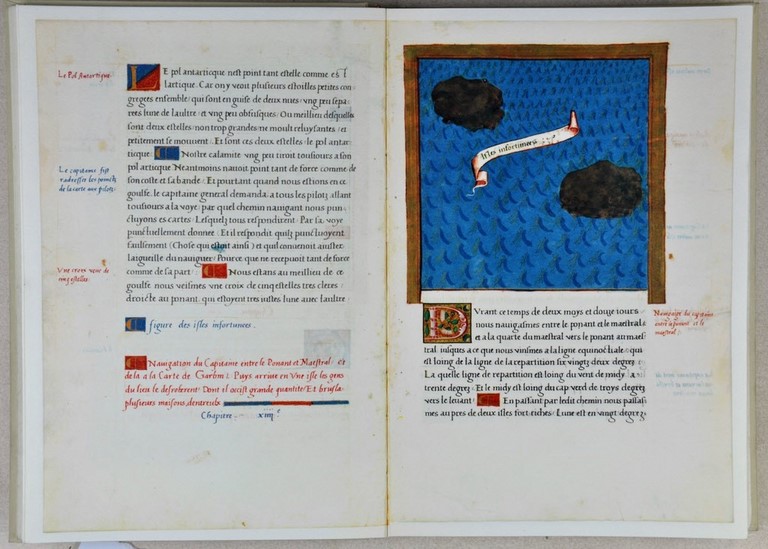 Le Pol Antartique.
LE pol antarticque nest point tant estelle comme est l
lartique. Car on y veoit plusieurs estoilles petites con
gregees ensemble, qui sont en guise de deux nues, vng peu sepa
rees lune de laultre, et vng peu obfusques. Ou meillieu desquelles
sont deux estelles, non trop grandes ne moult reluysantes, et
petitement se mouuent. Et sont ces deux estelles, le pol antar
tique. Nostre calamite vng peu tiroit tousiours a son
pol artique. Neantmoins nauoit point tant de force comme de
son coste et sa bande. Et pourtant quand nous estions en ce
goulfe, le capitaine general demanda a tous les pilotz, allant
tousiours a la voye, par quel chemin nauigant nous pun
Le capitaine fist
radresser les pointz
de la carte aux pilotz.
cluyons es cartes. Lesquelz tous respondirent. Par sa voye
punctuellement donnee. Et il respondit quilz punctuoyent
faulsement (Chose qui estoit ainsi) et quil conuenoit aiuster
laiguille du nauiguer. Pource que ne receuoit tant de force
comme de sa part. Nous estans au meillieu de ce
goulfe nous veismes vne croix de cinq estelles tres cleres
droicte au ponant, qui estoyent tres iustes lune auec laultre
Vne croix veue de
cinq estelles.
figure des isles infortunees.
Nauigation du Capitaine entre le Ponant et Maestral, et
de la a la Carte de Garbin. Puys arriue en Vne isle les gens
du lieu le desroberent. Dont il occist grande quantite. Et brusla
plusieurs maisons dentreulx
Chapitre. xiiij.e
Isles infortunees
DVrant ce temps de deux moys et douze iours
nous nauigasmes entre le ponant et le maestral
et a la quarte du maestral vers le ponant au maes
tral iusques a ce que nous vinsmes a la ligne equinoctiale, qui
est loing de la ligne de la repartition six vingtz deux degrez.
La quelle ligne de repartition est loing du vent de midy, a
trente degrez. Et le midy est loing du cap verd de troys degrez
vers le leuant. En passant par ledit chemin nous passas
mes aupres de deux isles fort riches. Lune est en vingt degrez